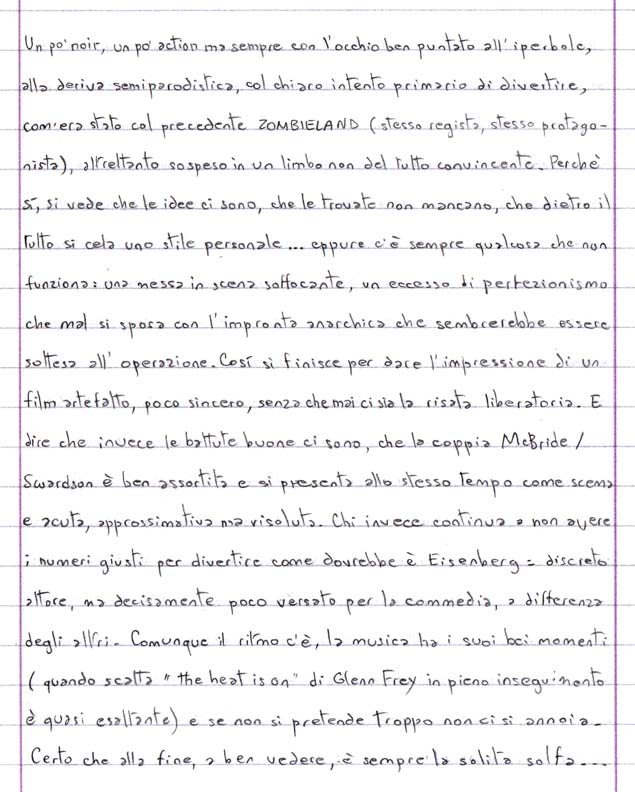 Un po' noir, un po' action ma sempre con l'occhio ben puntato all'iperbole,
alla deriva semiparodistica, col chiaro intento primario di divertire,
com'era stato col precedente ZOMBIELAND (stesso regista, stesso protago-
nista), altrettanto sospeso in un limbo non del tutto convincente. Perchè
sì, si vede che le idee ci sono, che le trovate non mancano, che dietro il
tutto si cela uno stile personale... eppure c'è sempre qualcosa che non
funziona: una messa in scena soffocante, un eccesso di perfezionismo
che mal si sposa con l'impronta anarchica che sembrerebbe essere
sottesa all'operazione. Così si finisce per dare l'impressione di un
film artefatto, poco sincero, senza che mai ci sia la risata liberatoria. E
dire che invece le battute buone ci sono, che la coppia McBride/
Swardson è ben assortita e si presenta allo stesso tempo come scema
e acuta, approssimativa ma risoluta. Chi invece continua a non avere
i numeri giusti per divertire come dovrebbe è Eisenberg: discreto
attore, ma decisamente poco versato per la commedia, a differenza
degli altri. Comunque il ritmo c'è, la musica ha i suoi bei momenti
(quando scatta "the heat is on" di Glenn Frey in pieno inseguimento
è quasi esaltante) e se non si pretende troppo non ci si annoia.
Certo che alla fine, a ben vedere, è sempre la solita solfa...